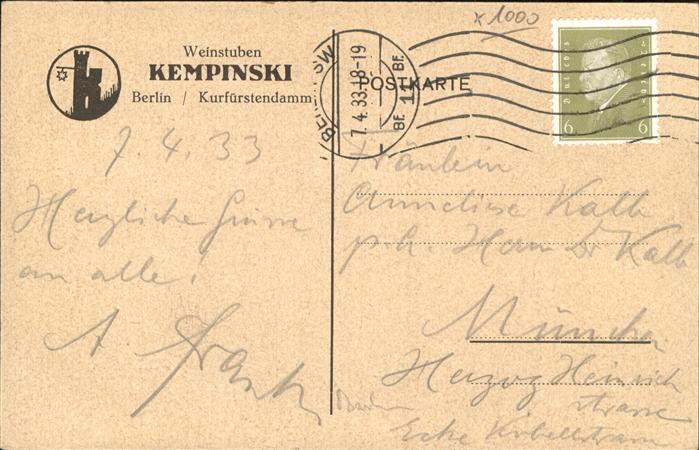 x 1000
Weinstuben
KEMPINSKI
Berlin / Kurfürstendamm
POSTKARTE
BERLIN SW
7.4.33.18-19
BF. 11 BF.
6 6
7.4.33
Herzliche Grüsse
an alle!
A Frank
Fräulein
Anneliese Kalb
p.A. Herrn Dr Kalb
München
Herzog Heinrich
strasse
Ecke Kobellstrasse